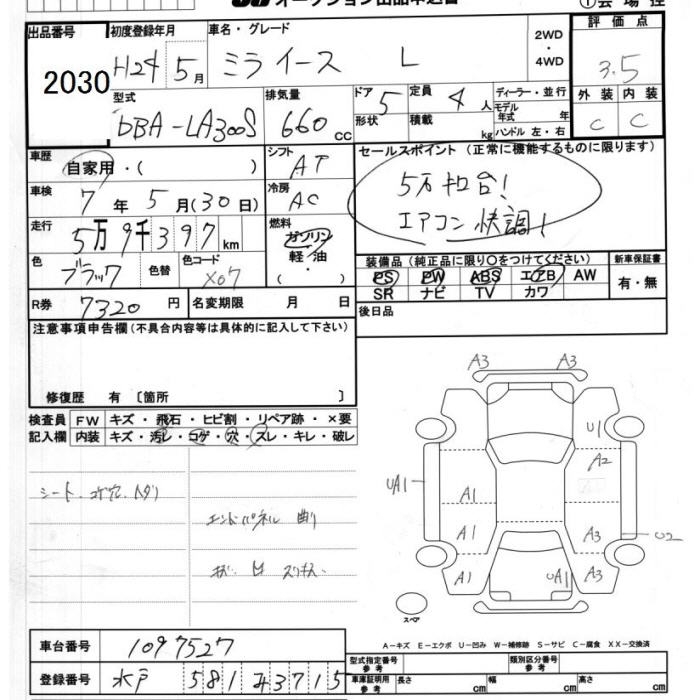 オークション出品申込書
①会場控
出品番号 初度登録年月 車名・グレード 2WD ・ 4WD 評価点
2030 H24 5月 ミライース L 3.5
型式 排気量 ドア 5 定員 4人 ディーラー・並行 外装 内装
形状 積載 kg モデル年式 年 C C
DBA-LA300S 660cc ハンドル 左・右
車歴 自家用・( ) シフト AT セールスポイント (正常に機能するものに限ります)
車検 7年5月(30日) 冷房 AC 5万キロ台!
走行 5万9千397km 燃料 ガソリン 軽・油 ・( ) エアコン快調!
色 ブラック 色替 色コード X07 装備品(純正品に限り○をつけてください) 新車保証書
PS PW ABS エアB AW 有・無
SR ナビ TV カワ
R券 7320円 名変期限 月 日 後日品
注意事項申告欄(不具合内容等は具体的に記入して下さい)
修復歴 有 〔箇所 〕
検査員 FW キズ・飛石・ヒビ割・リペア跡・×要
記入欄 内装 キズ・汚レ・コゲ・穴・スレ・キレ・破レ
シート コゲ穴
エンドパネル 曲り
A3 A3
U1
A2
UA1 A1
A1 A3 U2
A1 UA1 A3
スペア
A-キズ E-エクボ U-凹み W-補修跡 S-サビ C-腐食 XX-交換済
車台番号 1097527 型式指定番号 参考 類別区分番号 参考
登録番号 水戸 581 43715 車庫証明用 参考 長さ cm 幅 cm 高さ cm